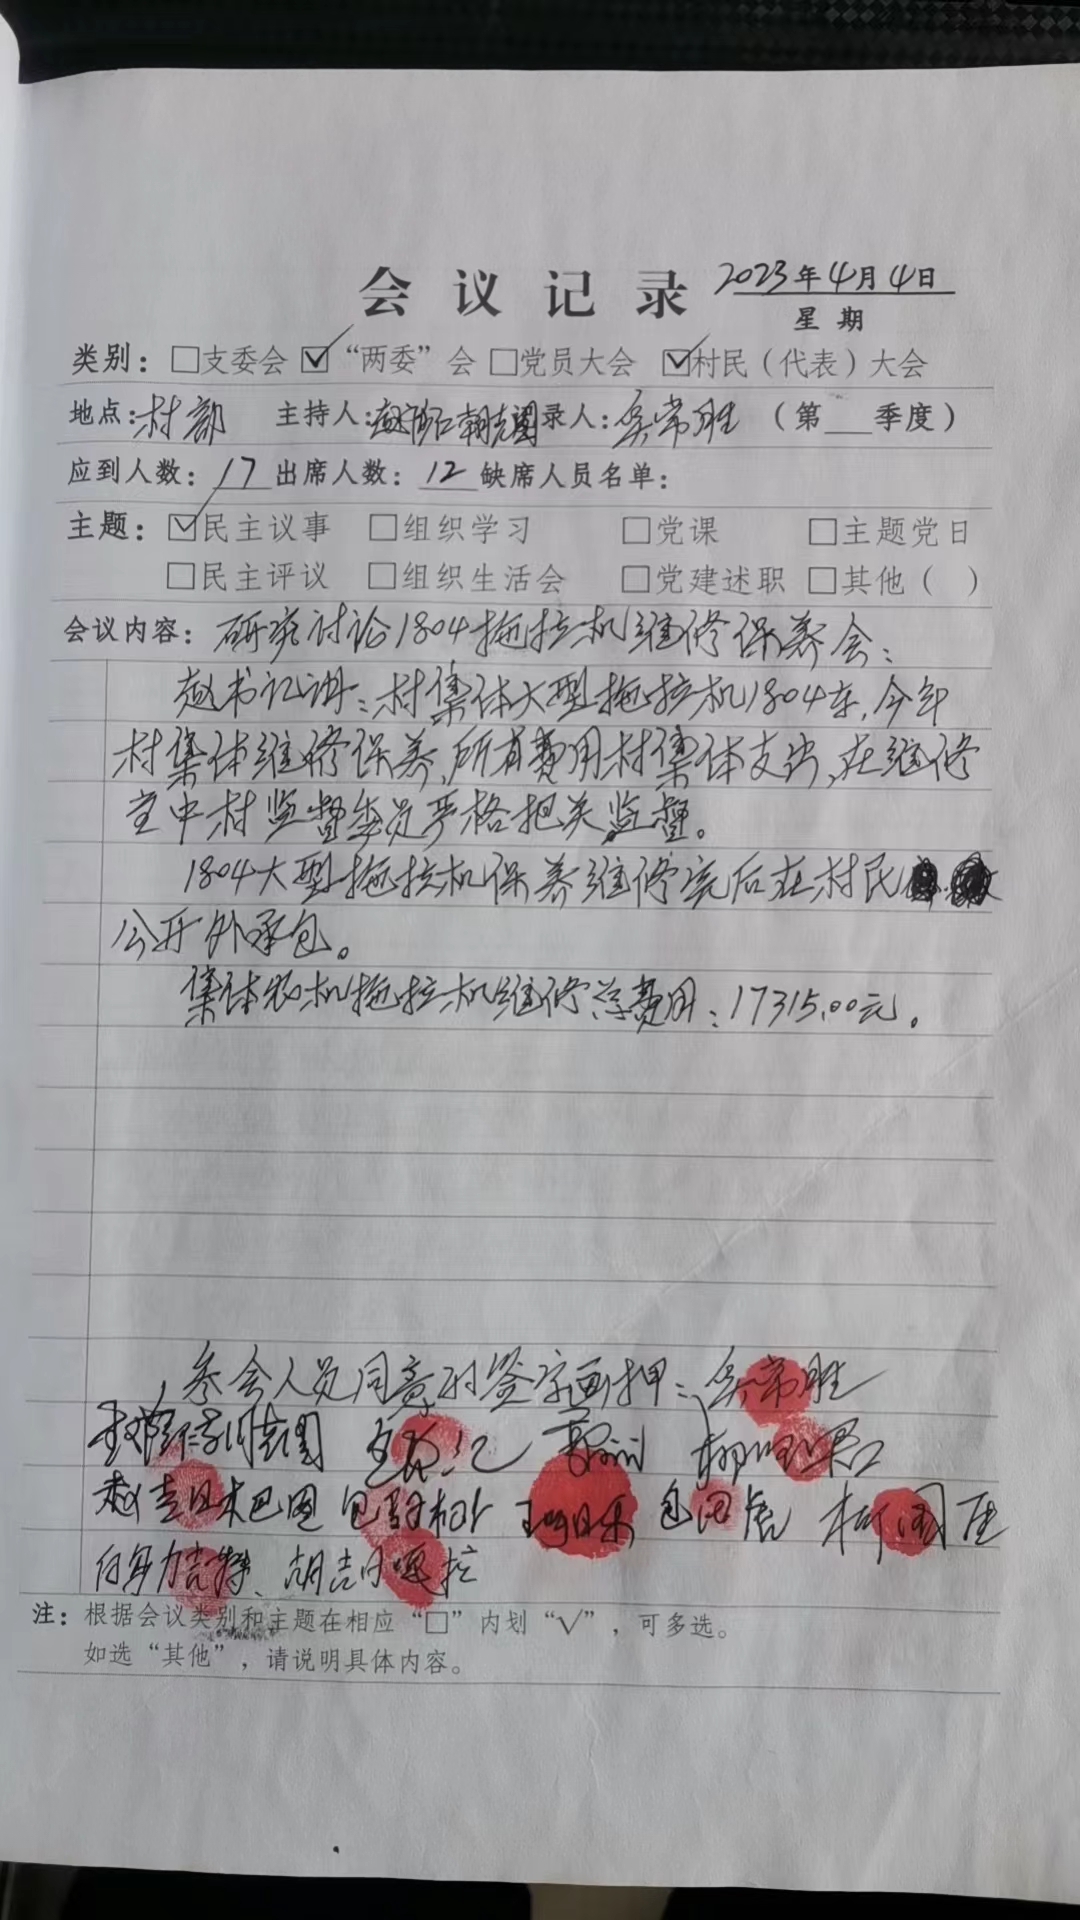 会议记录 2023年4月4日
星期
类别：□支委会 ☑“两委”会 □党员大会 ☑村民（代表）大会
地点：村部 主持人： 录人：吴常胜 （第___季度）
应到人数：17 出席人数：12 缺席人员名单：
主题：☑民主议事 □组织学习 □党课 □主题党日
□民主评议 □组织生活会 □党建述职 □其他（ ）
会议内容：研究讨论1804拖拉机维修保养会：
赵书记讲：村集体大型拖拉机1804车，今年
村集体维修保养，所有费用村集体支出，在维修
当中村监督委员严格把关监督。
1804大型拖拉机保养维修完后在村民
公开外承包。
集体农机拖拉机维修总费用：17315.00元。
参会人员同意的签字画押：吴常胜
赵吉日木巴图 包
白身力吉特、胡吉日嘎拉
注：根据会议类别和主题在相应“□”内划“√”，可多选。
如选“其他”，请说明具体内容。